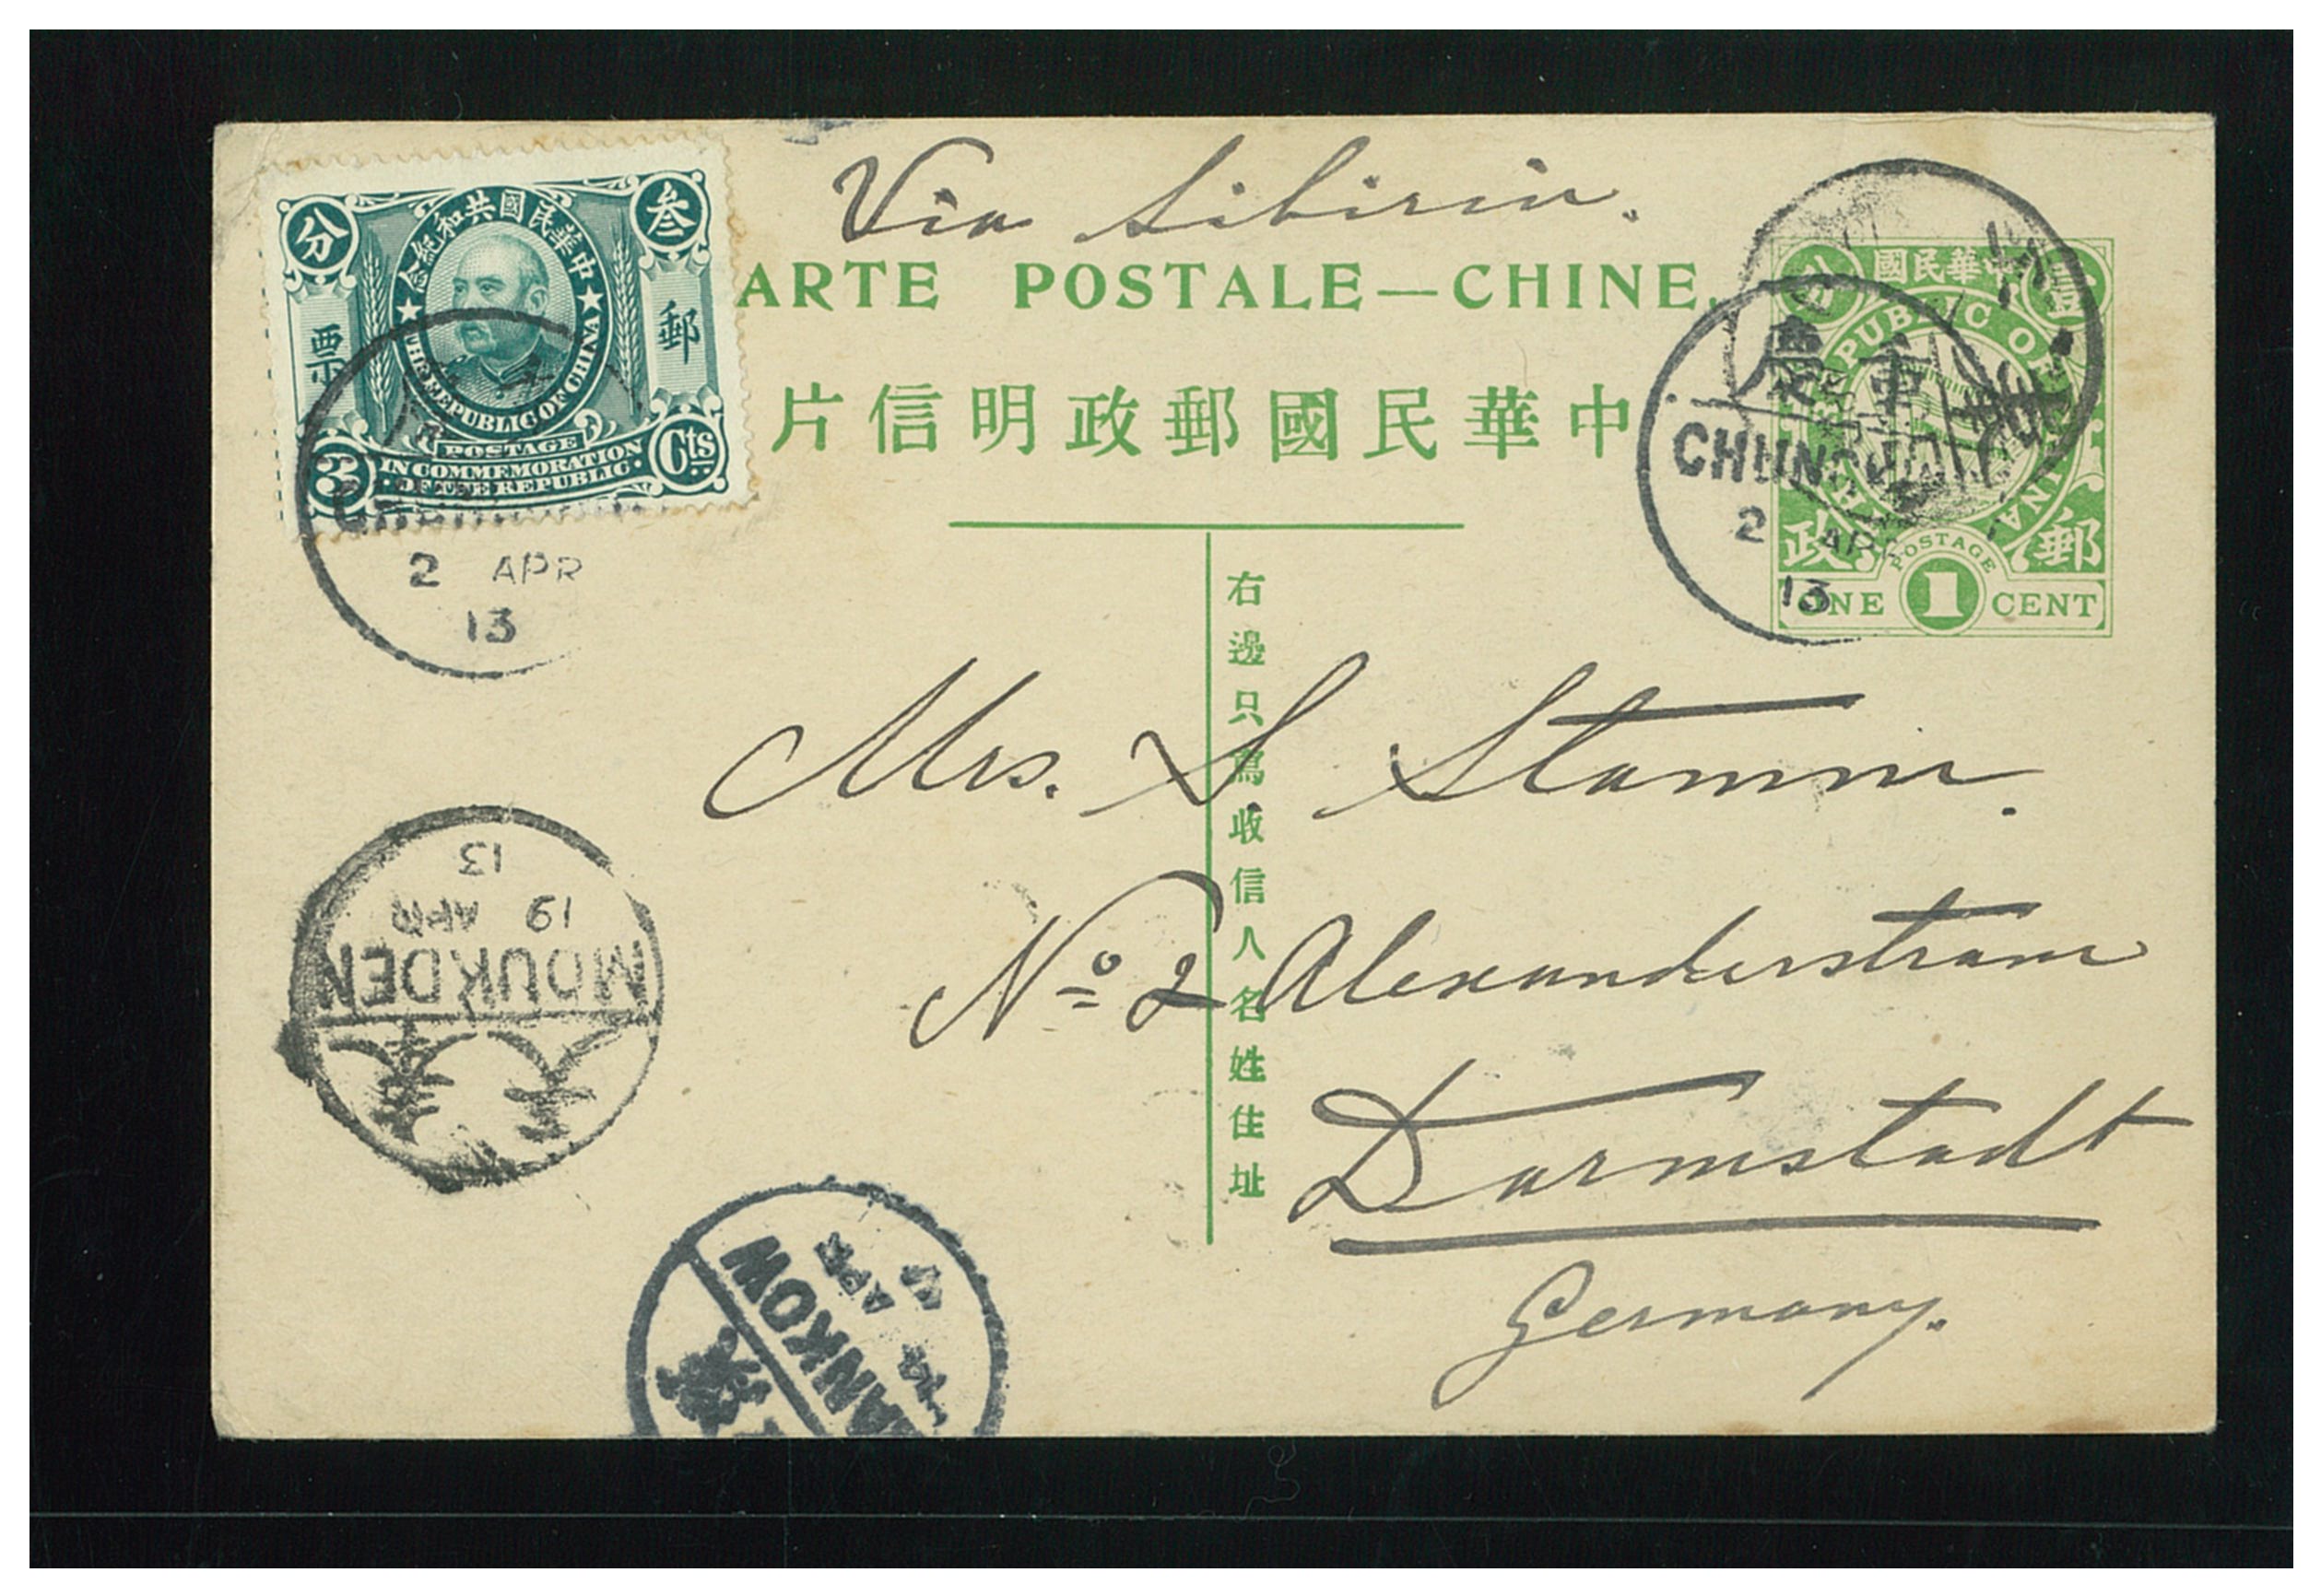 Via Sibirien.
ARTE POSTALE—CHINE.
片信明政郵國民華中
分 叁
中華民國共和紀念
票 郵
THE REPUBLIC OF CHINA
POSTAGE
IN COMMEMORATION
OF THE REPUBLIC
3 Cts
2 APR
13
國民華中
分 壹
PUBLIC OF
政 郵
POSTAGE
ONE 1 CENT
慶重
CHUNGKING
2 APR
13
右邊只爲收信人名姓住址
Mrs. S. Stamm.
No 2 Alexanderstrasse
Darmstadt
Germany.
MOUKDEN
19 APR
13
ANKOW
APR